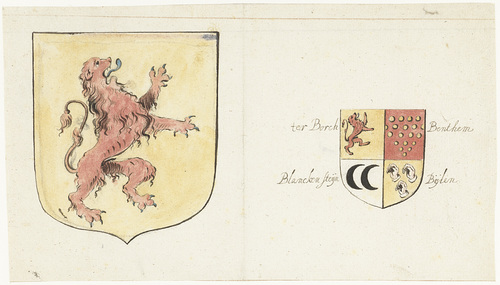 ter Borch Benthem
Blanckensteijn Bijlen